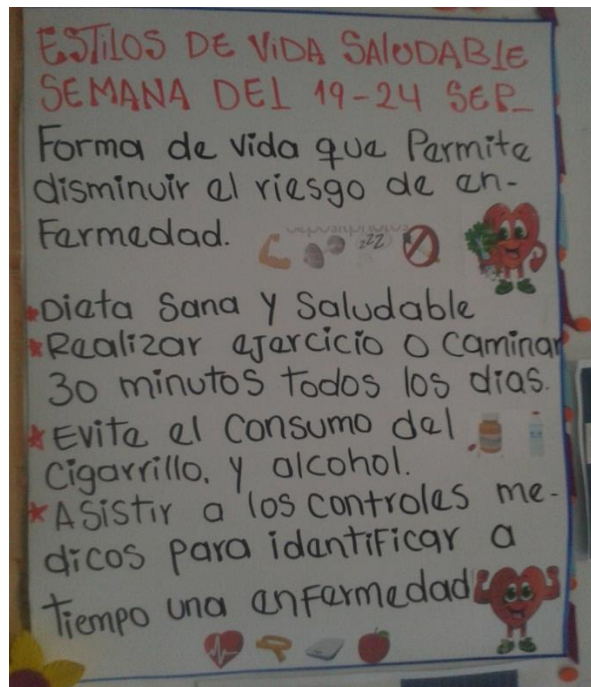 ESTILOS DE VIDA SALUDABLE
SEMANA DEL 19-24 SEP_
Forma de vida que Permite
disminuir el riesgo de en-
Fermedad.
depositphotos
zzz
*Dieta Sana y Saludable
*Realizar ejercicio o caminar
30 minutos todos los dias.
*Evite el consumo del
cigarrillo, y alcohol.
*Asistir a los controles me-
dicos para identificar a
tiempo una enfermedad